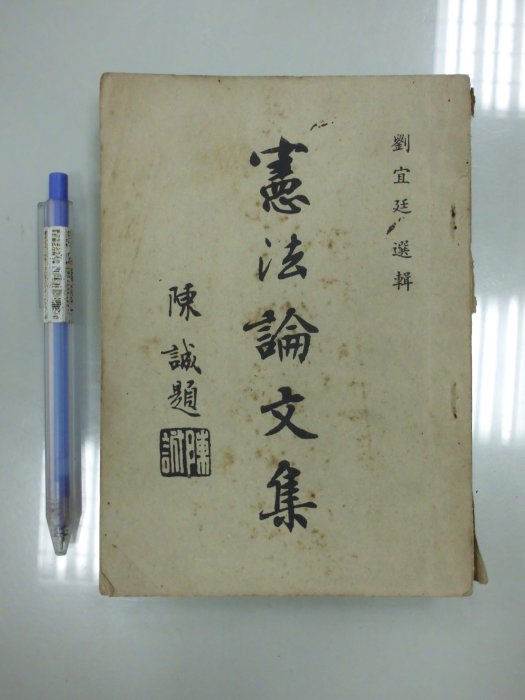 劉宜廷 選輯
憲法論文集
陳誠題
陳誠